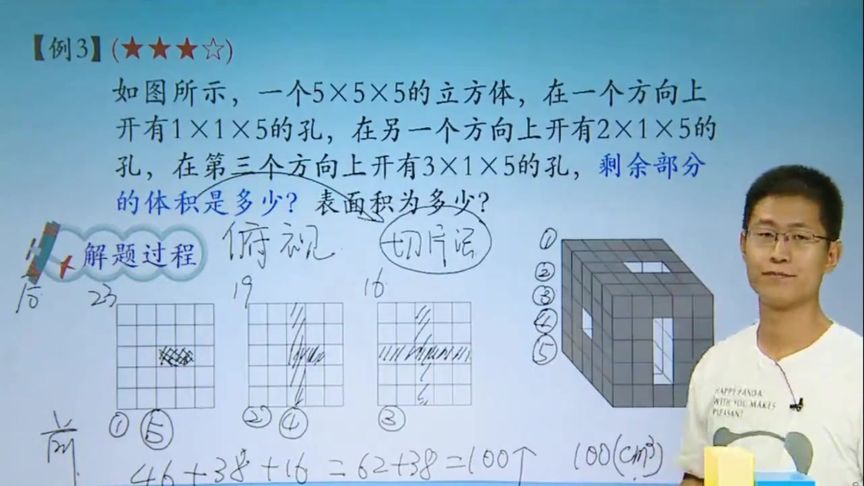 【例3】(★★★☆)
如图所示，一个5×5×5的立方体，在一个方向上
开有1×1×5的孔，在另一个方向上开有2×1×5的
孔，在第三个方向上开有3×1×5的孔，剩余部分
的体积是多少？表面积为多少？
解题过程 俯视 切片法
23 19 16
①
②
③
④
⑤
① ⑤ ② ④ ③
前
46+38+16=62+38=100个 100(cm³)
HAPPY PANDA
WITH YOU MAKES
PLEASANT